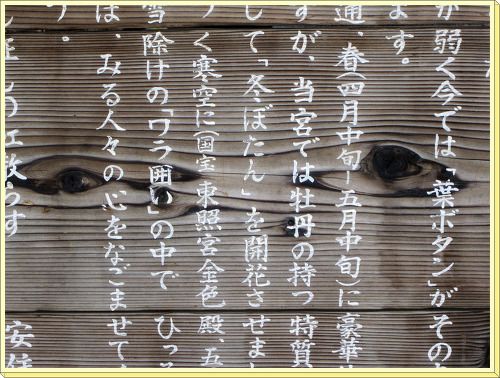 が弱く今では「葉ボタン」がその
ます。
通、春(四月中旬―五月中旬)に豪華
すが、当宮では牡丹の持つ特質
して「冬ぼたん」を開花させまし
く寒空に(国宝東照宮金色殿、五
雪除けの「ワラ囲い」の中でひっ
は、みる人々の心をなごませて
う。